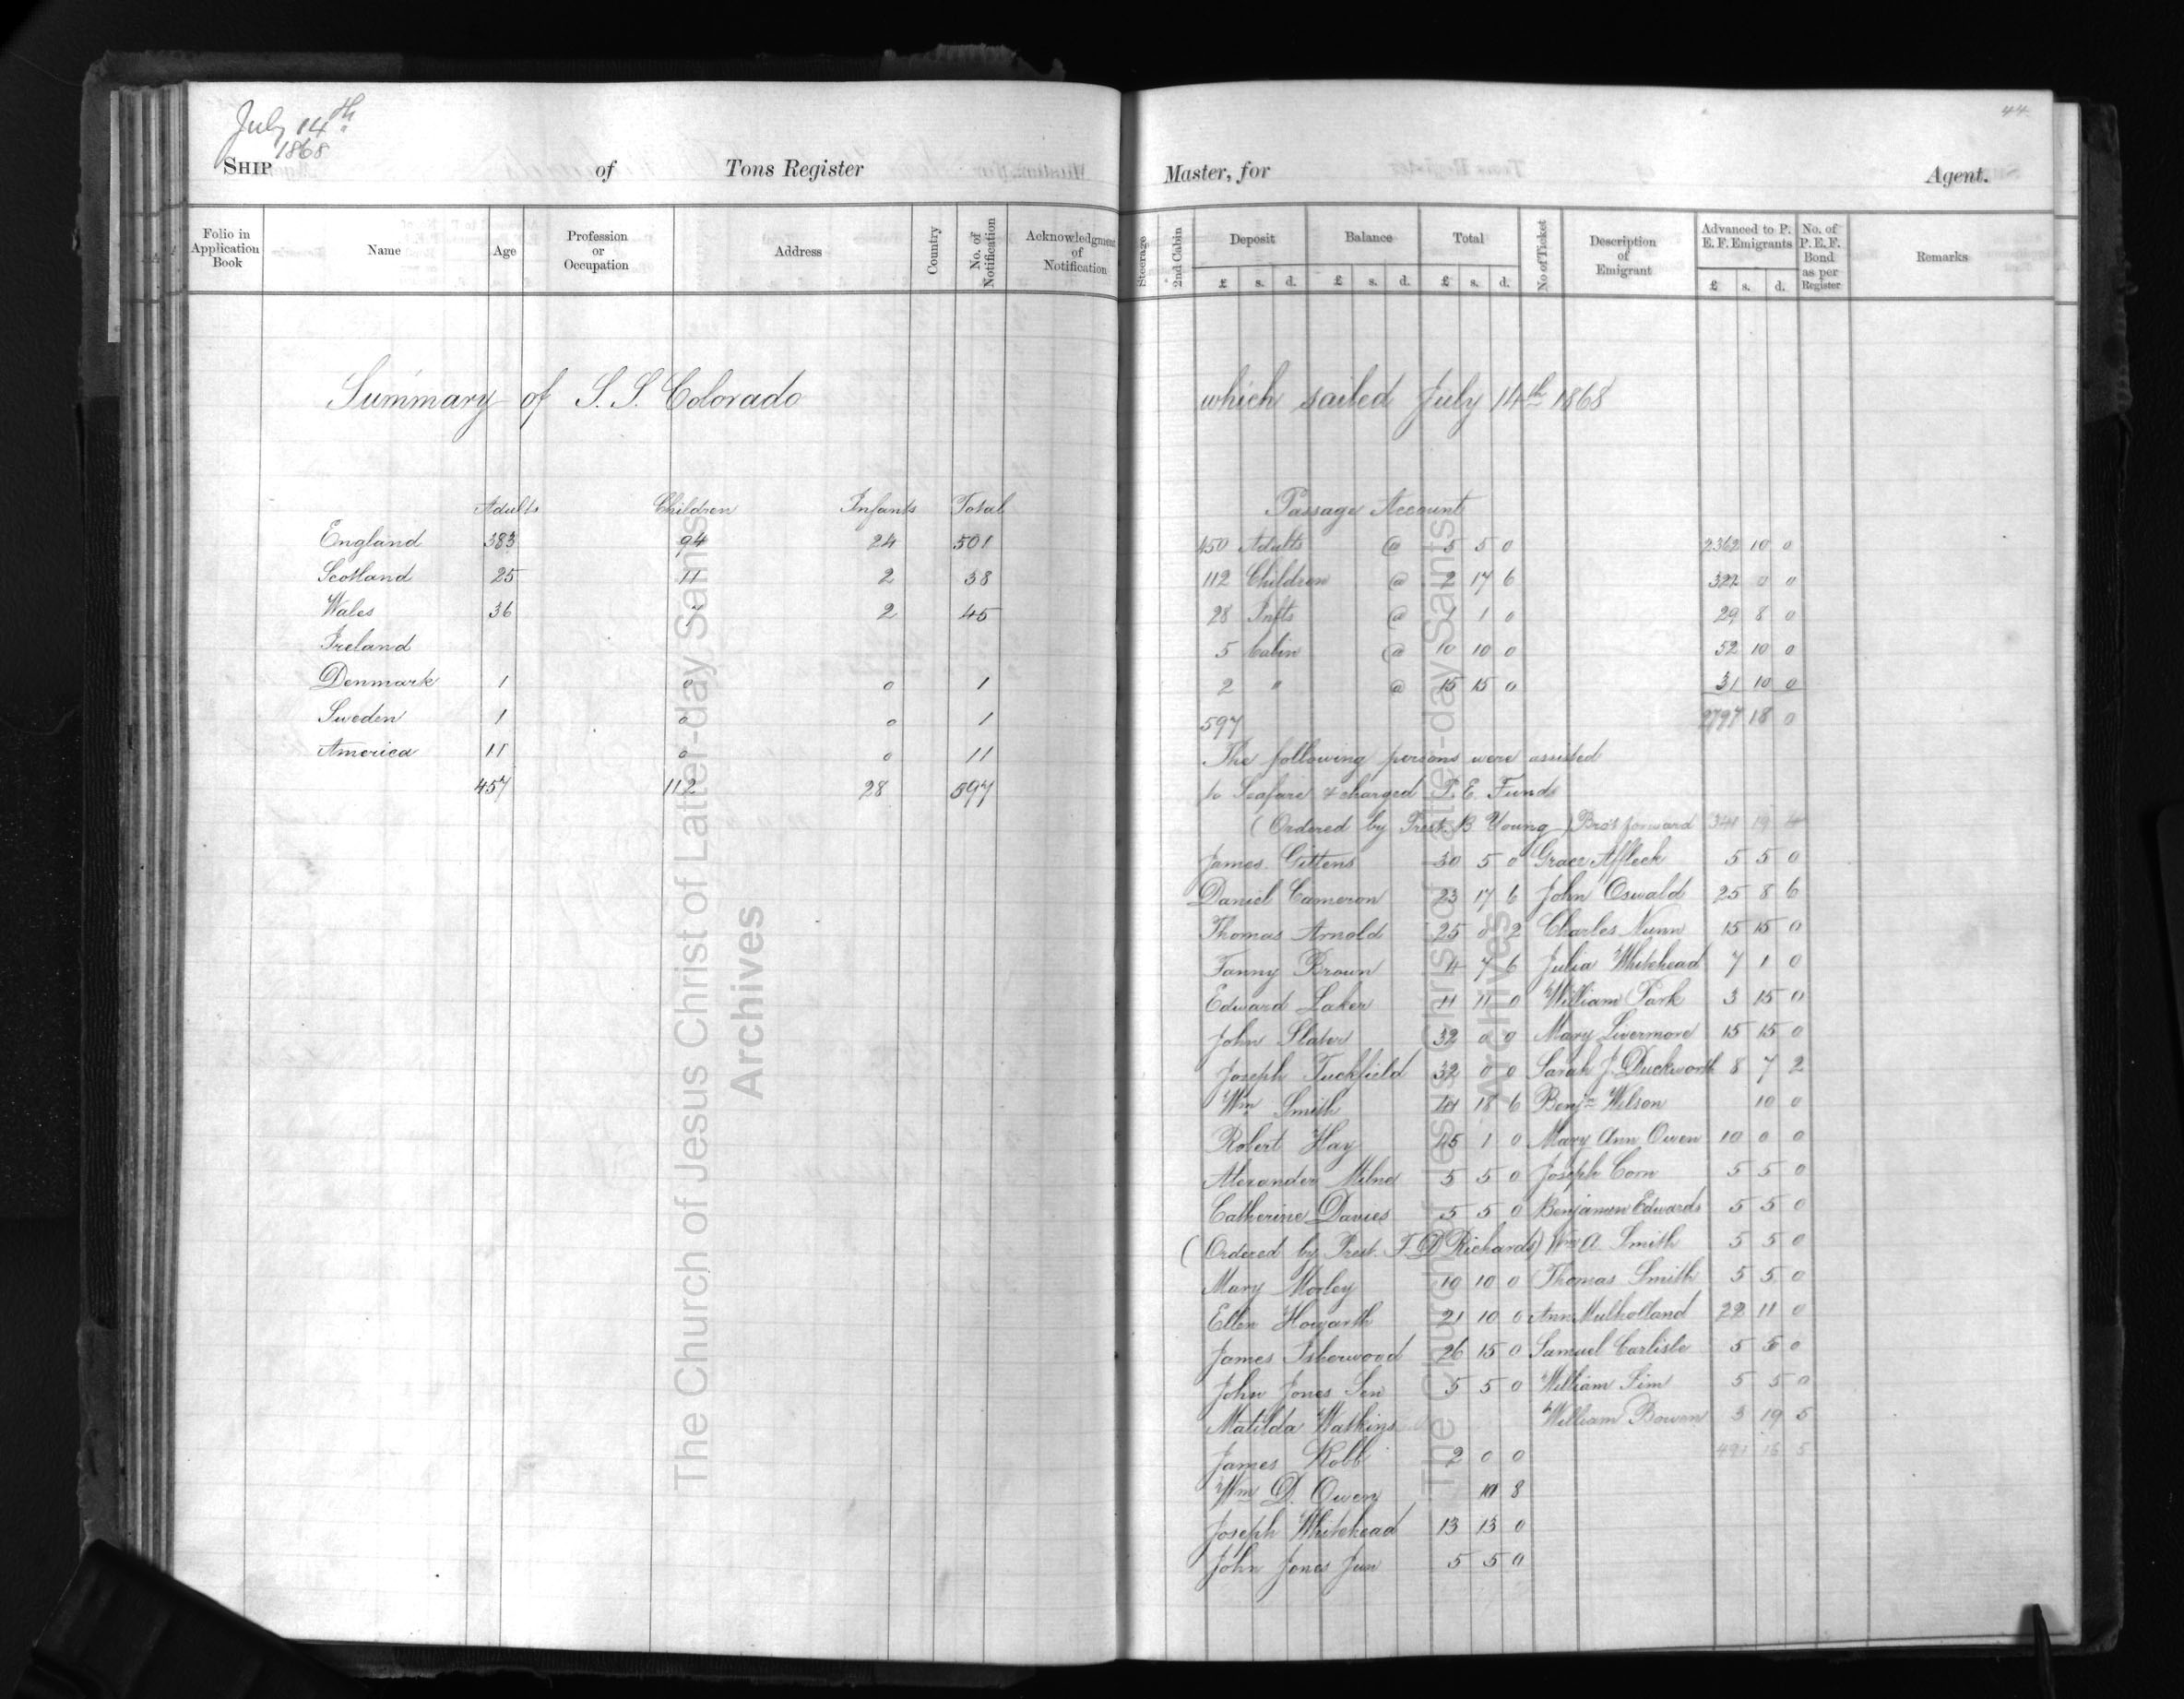 July 14th
1868
44
SHIP of Tons Register Master, for Agent.
Folio in Application Book Name Age Profession or Occupation Address Country No. of Notification Acknowledgment of Notification Steerage 2nd Cabin Deposit £ s. d. Balance £ s. d. Total £ s. d. No of Ticket Description of Emigrant Advanced to P. E. F. Emigrants £ s. d. No. of P. E. F. Bond as per Register Remarks
Summary of S. S. Colorado which sailed July 14th 1868
Adults Children Infants Total
England 383 94 24 501
Scotland 25 11 2 38
Wales 36 7 2 45
Ireland
Denmark 1 0 0 1
Sweden 1 0 0 1
America 11 0 0 11
457 112 28 597
Passage Account
450 Adults @ 5 5 0 2362 10 0
112 Children @ 2 17 6 322 0 0
28 Infts @ 1 1 0 29 8 0
5 Cabin @ 10 10 0 52 10 0
2 " @ 15 15 0 31 10 0
597 2797 18 0
The following persons were assisted
to Seafare & charged P. E. Funds
(Ordered by Prest. B Young) Brot forward 19
James Gittens 30 5 0 Grace Affleck 5 5 0
Daniel Cameron 23 17 6 John Oswald 25 8 6
Thomas Arnold 25 0 2 Charles Nunn 15 15 0
Fanny Brown 4 7 6 Julia Whitehead 7 1 0
Edward Laker 11 11 0 William Park 3 15 0
John Slater 32 0 0 Mary Livermore 15 15 0
Joseph Tuckfield 32 0 0 Sarah J. Duckworth 8 7 2
Wm Smith 18 6 Benjn Wilson 10 0
Robert Hay 45 1 0 Mary Ann Owen 10 0 0
Alexander Milne 5 5 0 Joseph Corn 5 5 0
Catherine Davies 5 5 0 Benjamin Edwards 5 5 0
(Ordered by Prest. F. D Richards) Wm A. Smith 5 5 0
Mary Morley 10 10 0 Thomas Smith 5 5 0
Ellen Howarth 21 10 0 Ann Mulholland 22 11 0
James Isherwood 26 15 0 Samuel Carlisle 5 5 0
John Jones Sen 5 5 0 William Sim 5 5 0
Matilda Watkins William Bowen 3 19 5
James Robb 2 0 0 491 5
Wm D. Owen 8
Joseph Whitehead 13 13 0
John Jones Jun 5 5 0
The Church of Jesus Christ of Latter-day Saints
Archives
The Church of Jesus Christ of Latter-day Saints
Archives